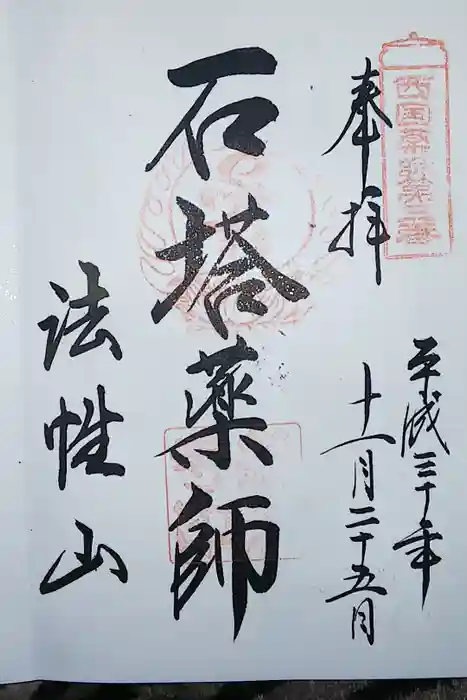 西国薬師第三番
奉拝
平成三十年
十一月二十五日
石塔薬師
法性山